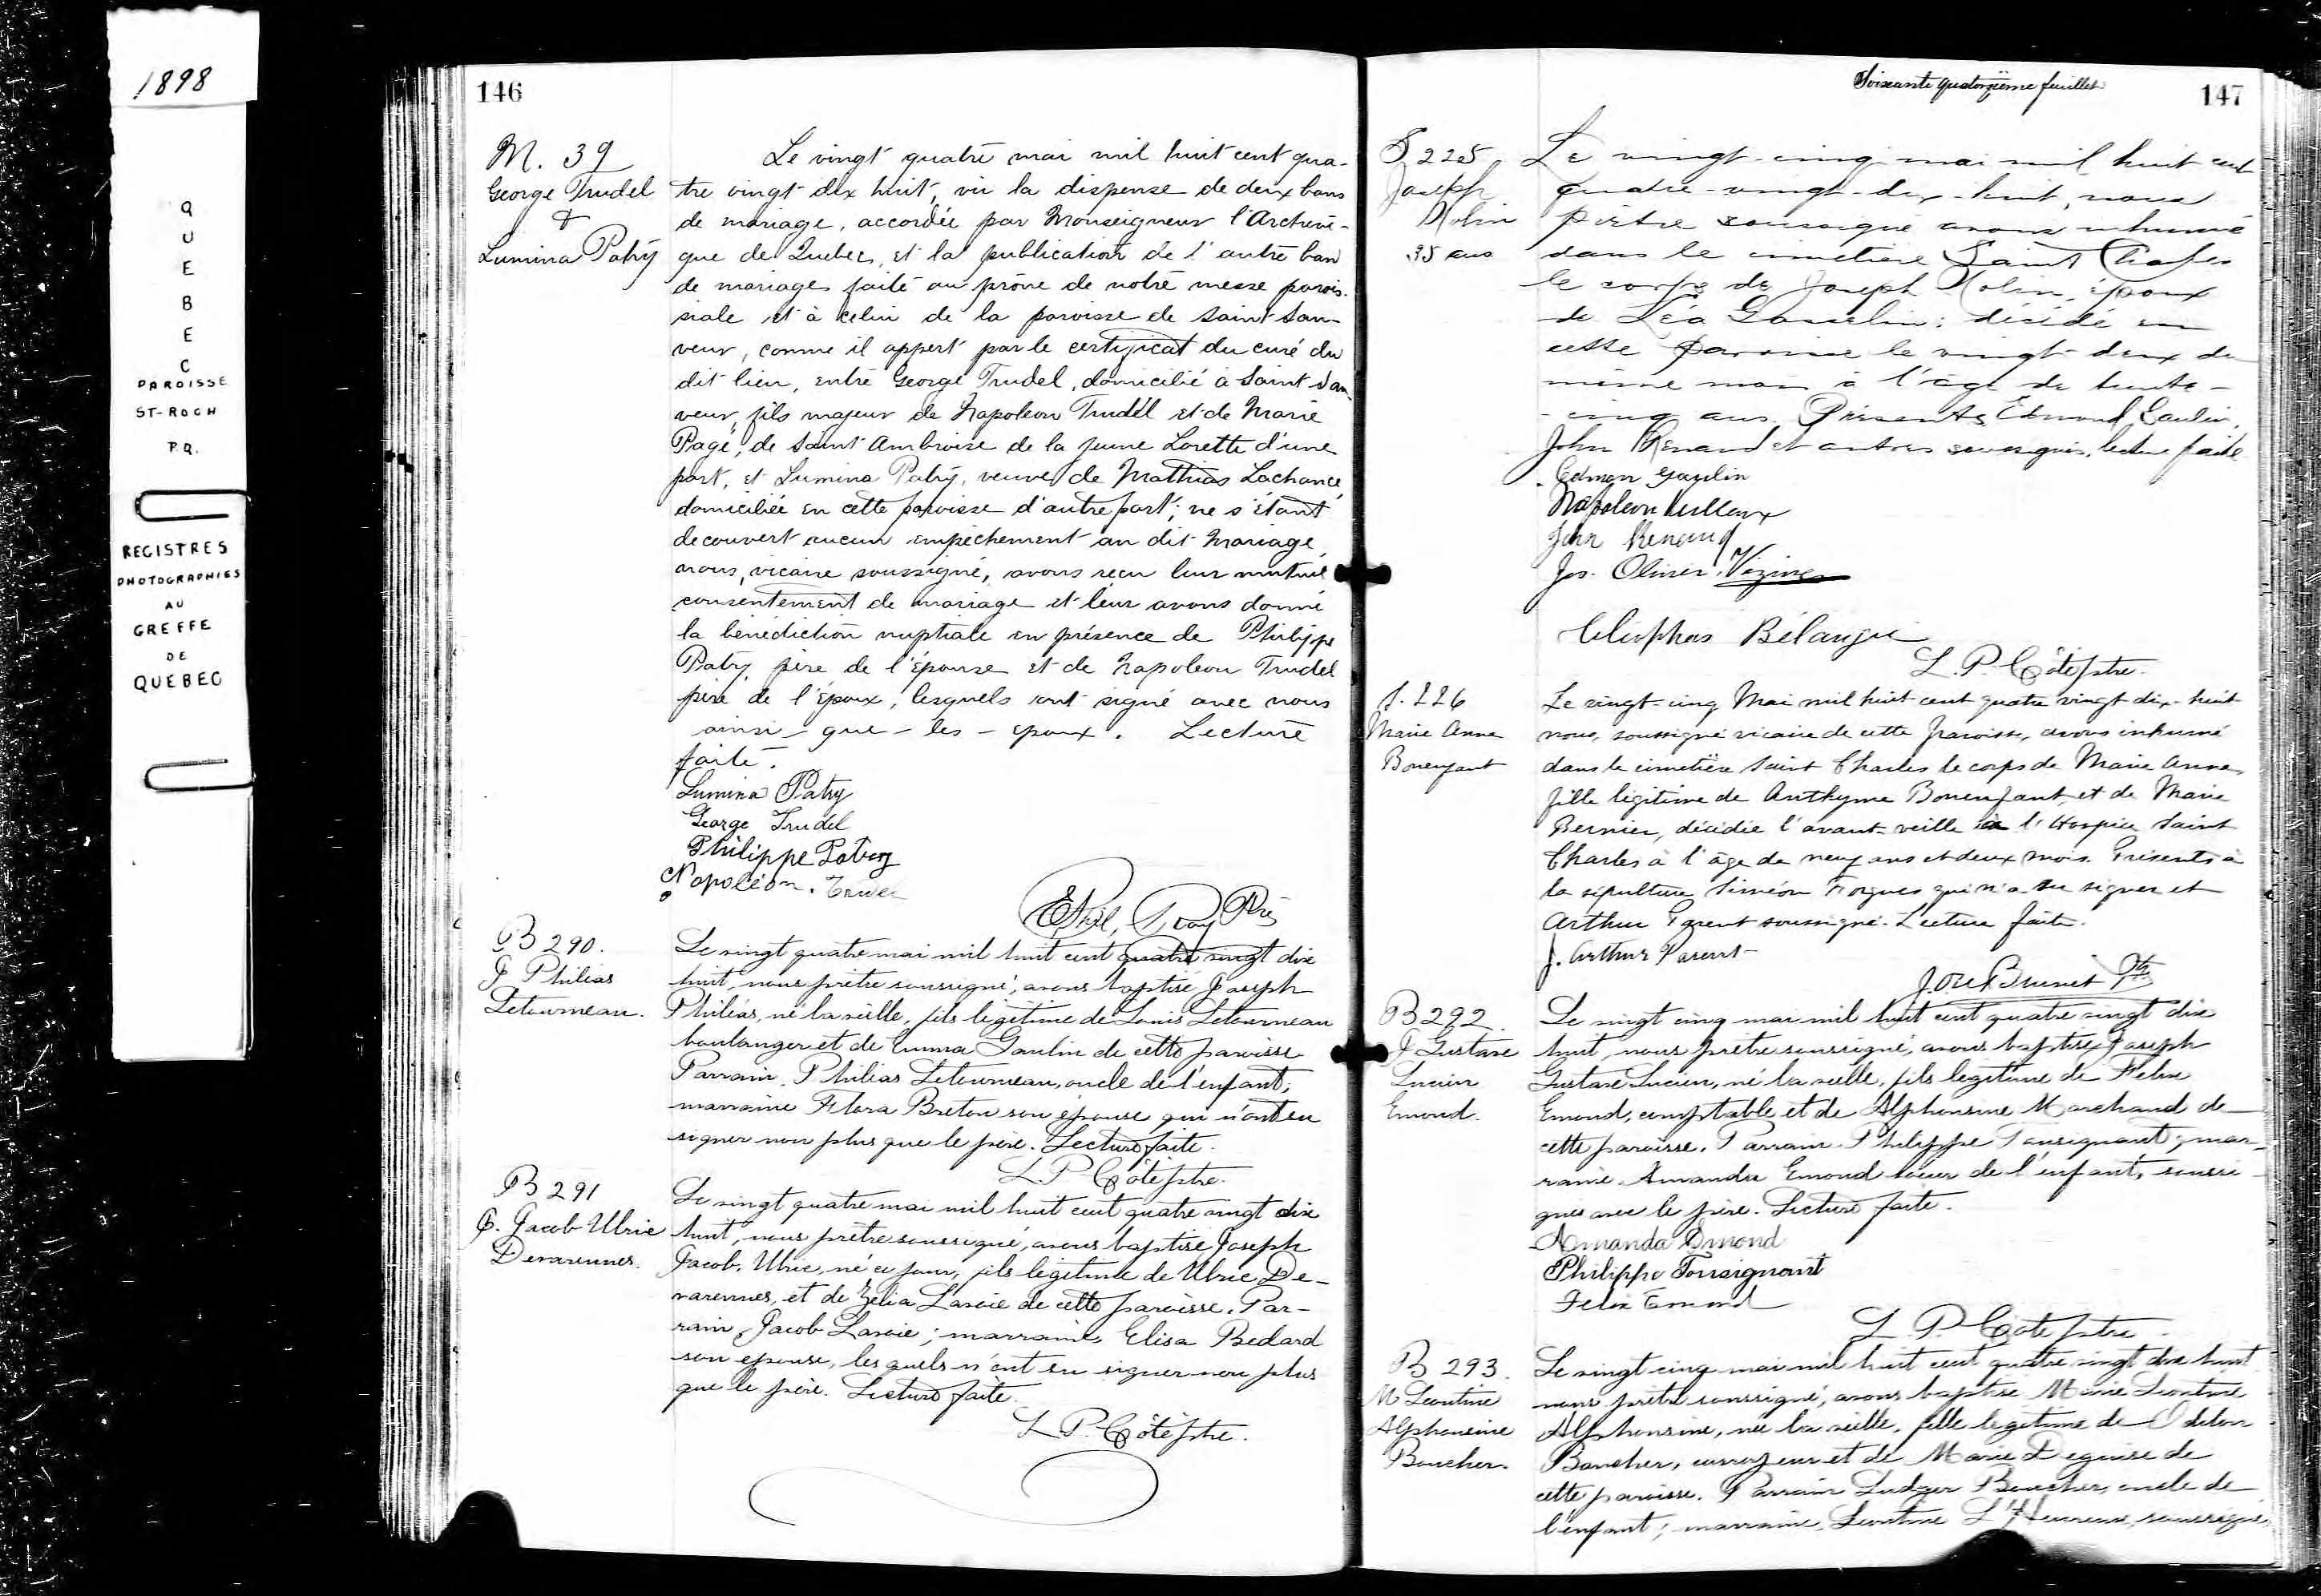 1898
QUEBEC
PAROISSE
ST-ROCH
P.Q.
REGISTRES
PHOTOGRAPHIES
AU
GREFFE
DE
QUEBEC
146
M. 39
George Trudel
&
Lumina Patry
Le vingt quatre mai mil huit cent qua-
tre vingt dix huit, vu la dispense de deux bans
de mariage, accordée par Monseigneur l'Archevê-
que de Quebec, et la publication de l'autre ban
de mariage faite au prône de notre messe parois-
siale et à celui de la paroisse de Saint Sau-
veur, comme il appert par le certificat du curé du
dit lieu, entre George Trudel, domicilié à Saint Sau-
veur, fils majeur de Napoleon Trudel et de Marie
Pagé, de Saint Ambroise de la jeune Lorette d'une
part, et Lumina Patry, veuve de Mathias Lachance,
domiciliée en cette paroisse d'autre part; ne s'étant
decouvert aucun empêchement au dit mariage,
nous, vicaire soussigné, avons reçu leur mutuel
consentement de mariage et leur avons donné
la bénédiction nuptiale en présence de Philippe
Patry, père de l'épouse et de Napoleon Trudel
père de l'époux, lesquels ont signé avec nous
ainsi - que - les - epoux. Lecture
faite.
Lumina Patry
George Trudel
Philippe Patry
Napoléon. Trudel
Ptre
B 290.
J Philias
Letourneau.
Le vingt quatre mai mil huit cent quatre vingt dix
huit, nous prêtre soussigné, avons baptisé Joseph
Philias, né la veille, fils légitime de Louis Letourneau
boulanger et de Emma Gaulin de cette paroisse
Parrain, Philias Letourneau, oncle de l'enfant;
marraine Flora Breton son épouse qui n'ont su
signer non plus que le père. Lecture faite.
L. P. Côté ptre.
B 291
J. Jacob Ulric
Devarennes.
Le vingt quatre mai mil huit cent quatre vingt dix
huit, nous prêtre soussigné, avons baptisé Joseph
Jacob, Ulric, né ce jour, fils légitime de Ulric De-
varennes, et de Zélia Lavoie de cette paroisse. Par-
rain, Jacob Lavoie; marraine, Elisa Bedard
son epouse, lesquels n'ont su signer non plus
que le père. Lecture faite.
L. P. Côté ptre.
Soixante quatorzième feuillet
147
S 225
Joseph
Nolin
35 ans
Le vingt-cinq mai mil huit cent
quatre-vingt-dix-huit, nous
prêtre soussigné avons inhumé
dans le cimetière Saint Charles
le corps de Joseph Nolin, époux
de Léa Gosselin; décédé en
cette paroisse le vingt-deux du
même mois à l'âge de trente-
-cinq ans. Présents Edmond Gaulin,
John Renaud et autres soussignés, lecture faite
Edmon Gaulin
Napoleon
John Renaud
Jos. Olivier Vézina
Cléophas Bélanger
L. P. Côté ptre.
S. 226
Marie Anne
Bonenfant
Le vingt-cinq Mai mil huit cent quatre vingt dix-huit
nous, soussigné vicaire de cette paroisse, avons inhumé
dans le cimetière Saint Charles le corps de Marie Anne,
fille légitime de Anthyme Bonenfant et de Marie
Bernier, décédée l'avant-veille à l'Hospice Saint
Charles à l'âge de neuf ans et deux mois. Présents à
la sépulture Siméon Forgues qui n'a su signer et
Arthur Parent soussigné. Lecture faite.
J. Arthur Parent
Brunet Ptre
B 292.
J Gustave
Lucien
Emond.
Le vingt cinq mai mil huit cent quatre vingt dix
huit, nous prêtre soussigné, avons baptisé Joseph
Gustave Lucien, né la veille, fils legitime de Felix
Emond, comptable et de Alphonsine Marchand de
cette paroisse. Parrain Philippe Tousignant; mar-
raine Amanda Emond soeur de l'enfant, soussi-
gnés avec le père. Lecture faite.
Amanda Emond
Philippe Tousignant
Felix Emond
L. P. Coté ptre
B 293.
M Leontine
Alphonsine
Boucher.
Le vingt cinq mai mil huit cent quatre vingt dix huit
nous prêtre soussigné, avons baptisé Marie Leontine
Alphonsine, née la veille, fille legitime de Odilon
Boucher, corroyeur et de Marie Deguise de
cette paroisse. Parrain Ludger Boucher, oncle de
l'enfant; marraine, Leontine L'Heureux, soussignés